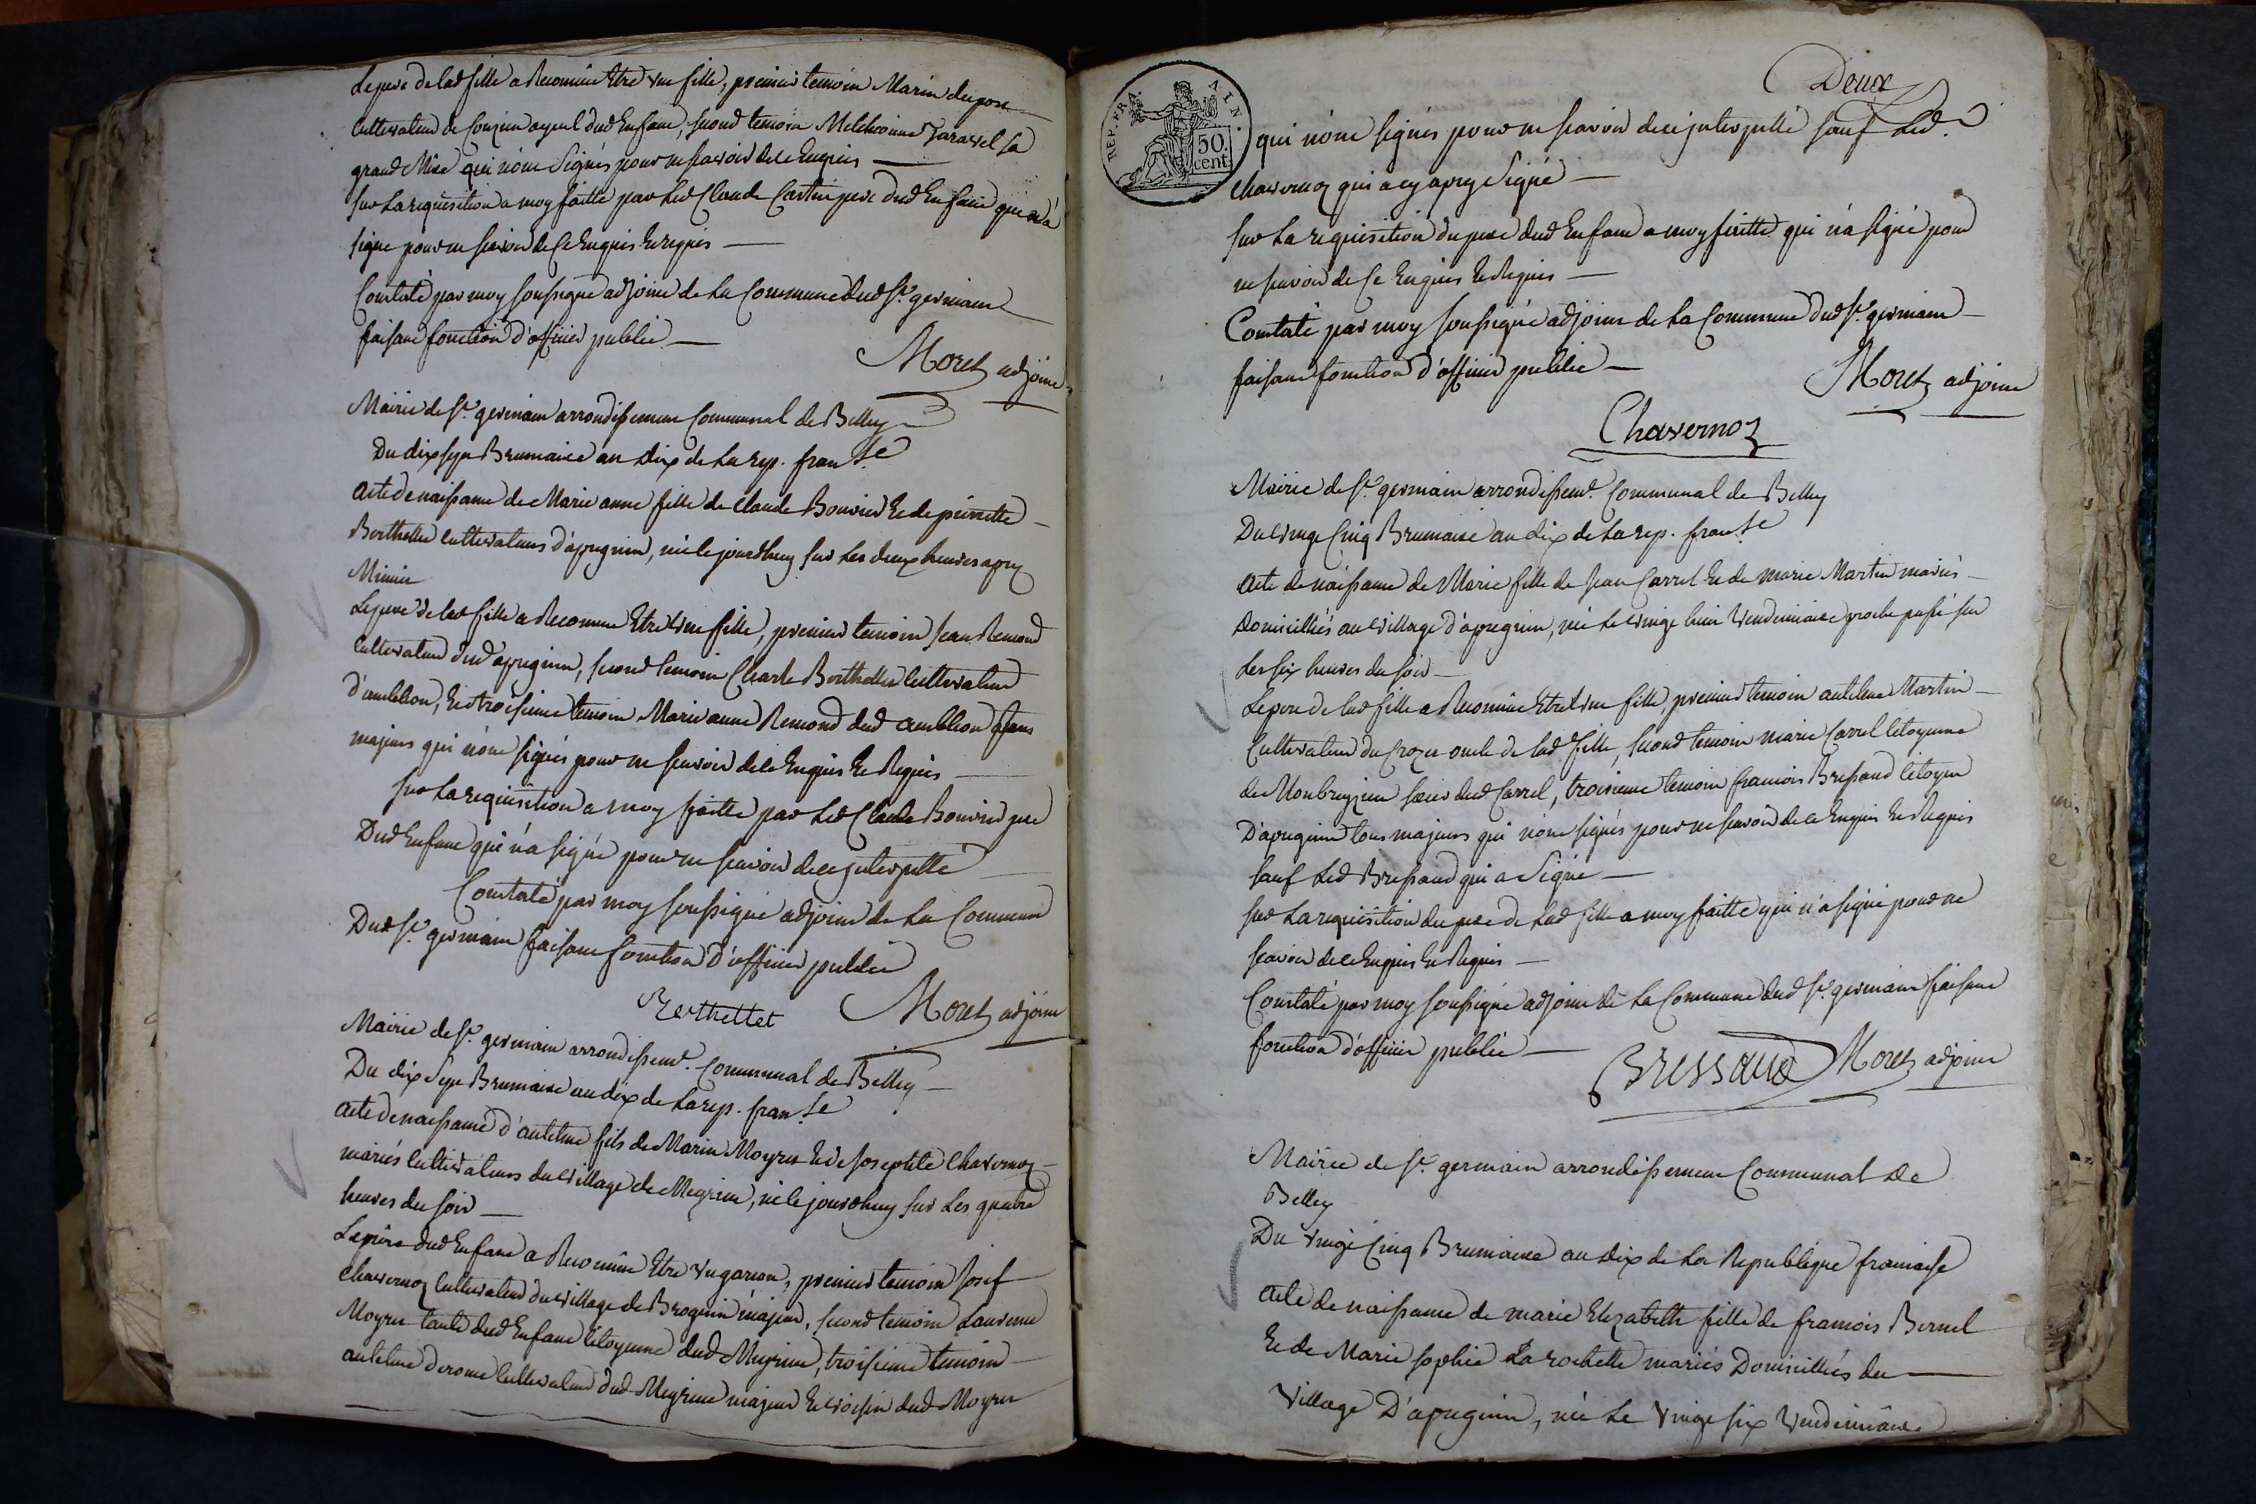 Le pere de lad fille a Reconnue Etre vne fille, premier temoin Marin dupont
Cultivateur de Conzieu ayeul dud Enfant, second temoin Melchionne Taravel sa
grand Mere qui n'ont Signés pour ne scavoir de ce Enquis
sur La requisition a moy faitte par Led Claude Cartin pere dud Enfant qui n'a
signe pour ne scavoir de Ce Enquis Et requis
Constaté par moy soussigné adjoint de La Commune dud St. germain
faisant fonction d'officier public
Moret adjoint
Mairie de St. germain arrondissement Communal de Belley
Du dix sept Brumaire an dix de La rep. franse
acte de naissance de Marie anne fille de Claude Bouvier Et de pierrette
Berthellet cultivateurs d'apregnin, née le jourdhuy sur Les deux heures apres
Minuit
Le pere de lad fille a Reconnue Etre vne fille, premier temoin Jean Remond
Cultivateur dud apregnin, second temoin Charle Berthellet cultivateur
d'ambléon, Et troisieme temoin Marie anne Remond dud ambléon tous
majeurs qui n'ont signés pour ne scavoir de Ce Enquis Et Requis
sur La requisition a moy faitte par Led Claude Bouvier pere
Dud Enfant qui n'a signé pour ne scavoir de ce interpellé
Constaté par moy soussigné adjoint de La Commune
Dud St. germain faisant fonction d'officier public
Berthettet Moret adjoint
Mairie de St. germain arrondissemt. Communal de Belley
Du dix Sept Brumaire an dix de La rep. franse
acte de naissance d'antelme fils de Marin Moyret Et de Josephte Chavernoz
mariés cultivateurs du village de Meyrieu, né le jourdhuy sur Les quatre
heures du soir
Le pere dud Enfant a Reconnu Etre vn garson, premier temoin Josef
Chavernoz Cultivateur du village de Brognin majeur, second temoin Laurence
Moyret tante dud Enfant Citoyenne dud Meyrieu, troisieme temoin
antelme derome cultivateur dud Meyrieu majeur Et voisin dud Moyret
Deux
REP. FRA. AIN.
50.
cent.
qui n'ont signés pour ne scavoir de ce interpellé sauf Led.
Chavernoz qui a cy apres Signé
sur La requisition du pere dud Enfant a moy faitte qui n'a signé pour
ne scavoir de Ce Enquis Et Requis
Constaté par moy soussigné adjoint de La Commune dud St. germain
faisant fonction d'officier public
Moret adjoint
Chavernoz
Mairie de St. germain arrondissemt. Communal de Belley
Du vingt Cinq Brumaire an dix de La rep. franse
acte de naissance de Marie fille de Jean Carrel Et de marie Martin mariés
Domicilliés au village d'apregnin, née Le vingt huit Vendemiaire proche passé sur
Les six heures du soir
Le pere de lad fille a Reconnue Etre vne fille, premier temoin antelme Martin
Cultivateur du Crozet oncle de lad fille, second temoin marie Carrel Citoyenne
de Monbreyzieu soeur dud Carrel, troisieme temoin francois Bressand Citoyen
D'apregnin tous majeurs qui n'ont signés pour ne scavoir de ce Enquis Et Requis
sauf Led Bressand qui a Signé
sur La requisition du pere de Lad fille a moy faitte qui n'a signé pour ne
scavoir de ce Enquis Et Requis
Constaté par moy soussigné adjoint de La Commune dud St. germain faisant
fonction d'officier public
Bressand Moret adjoint
Mairie de St. germain arrondissement Communal de
Belley
Du vingt Cinq Brumaire an dix de La Republique francaise
acte de naissance de marie Elizabeth fille de francois Bernel
Et de Marie sophie La rochette mariés Domicilliés du
village D'apregnin, née Le vingt six Vendemiaire